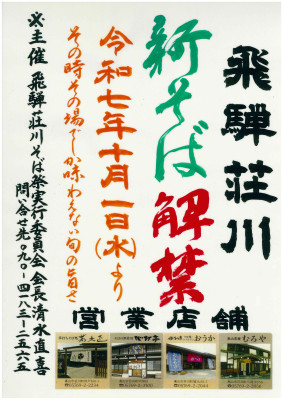 飛騨荘川
新そば解禁
令和七年十月一日(水)より
その時その場でしか味わえない旬の旨さ
※主催 飛騨荘川そば祭実行委員会 会長 清水直喜
問い合せ先〇九〇-四一八三-二五六五
営業店舗
おうか
むろや